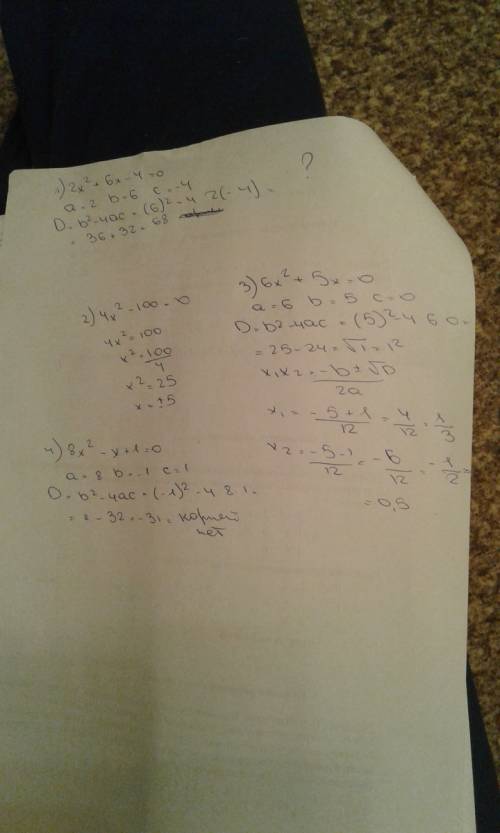 ?
1) 2x² + 6x - 4 = 0
a = 2 b = 6 c = -4
D = b² - 4ac = (6)² - 4 2(-4) =
= 36 + 32 = 68
2) 4x² - 100 = 0
4x² = 100
x² = 100/4
x² = 25
x = ±5
3) 6x² + 5x = 0
a = 6 b = 5 c = 0
D = b² - 4ac = (5)² - 4 6 0 =
= 25 - 24 = √1 = 12
x₁x₂ = -b ± √D / 2a
x₁ = -5 + 1 / 12 = 4/12 = 1/3
x₂ = -5 - 1 / 12 = -6/12 = -1/2 =
= 0,5
4) 8x² - x + 1 = 0
a = 8 b = -1 c = 1
D = b² - 4ac = (-1)² - 4 8 1 =
= 1 - 32 = -31 = корней
нет